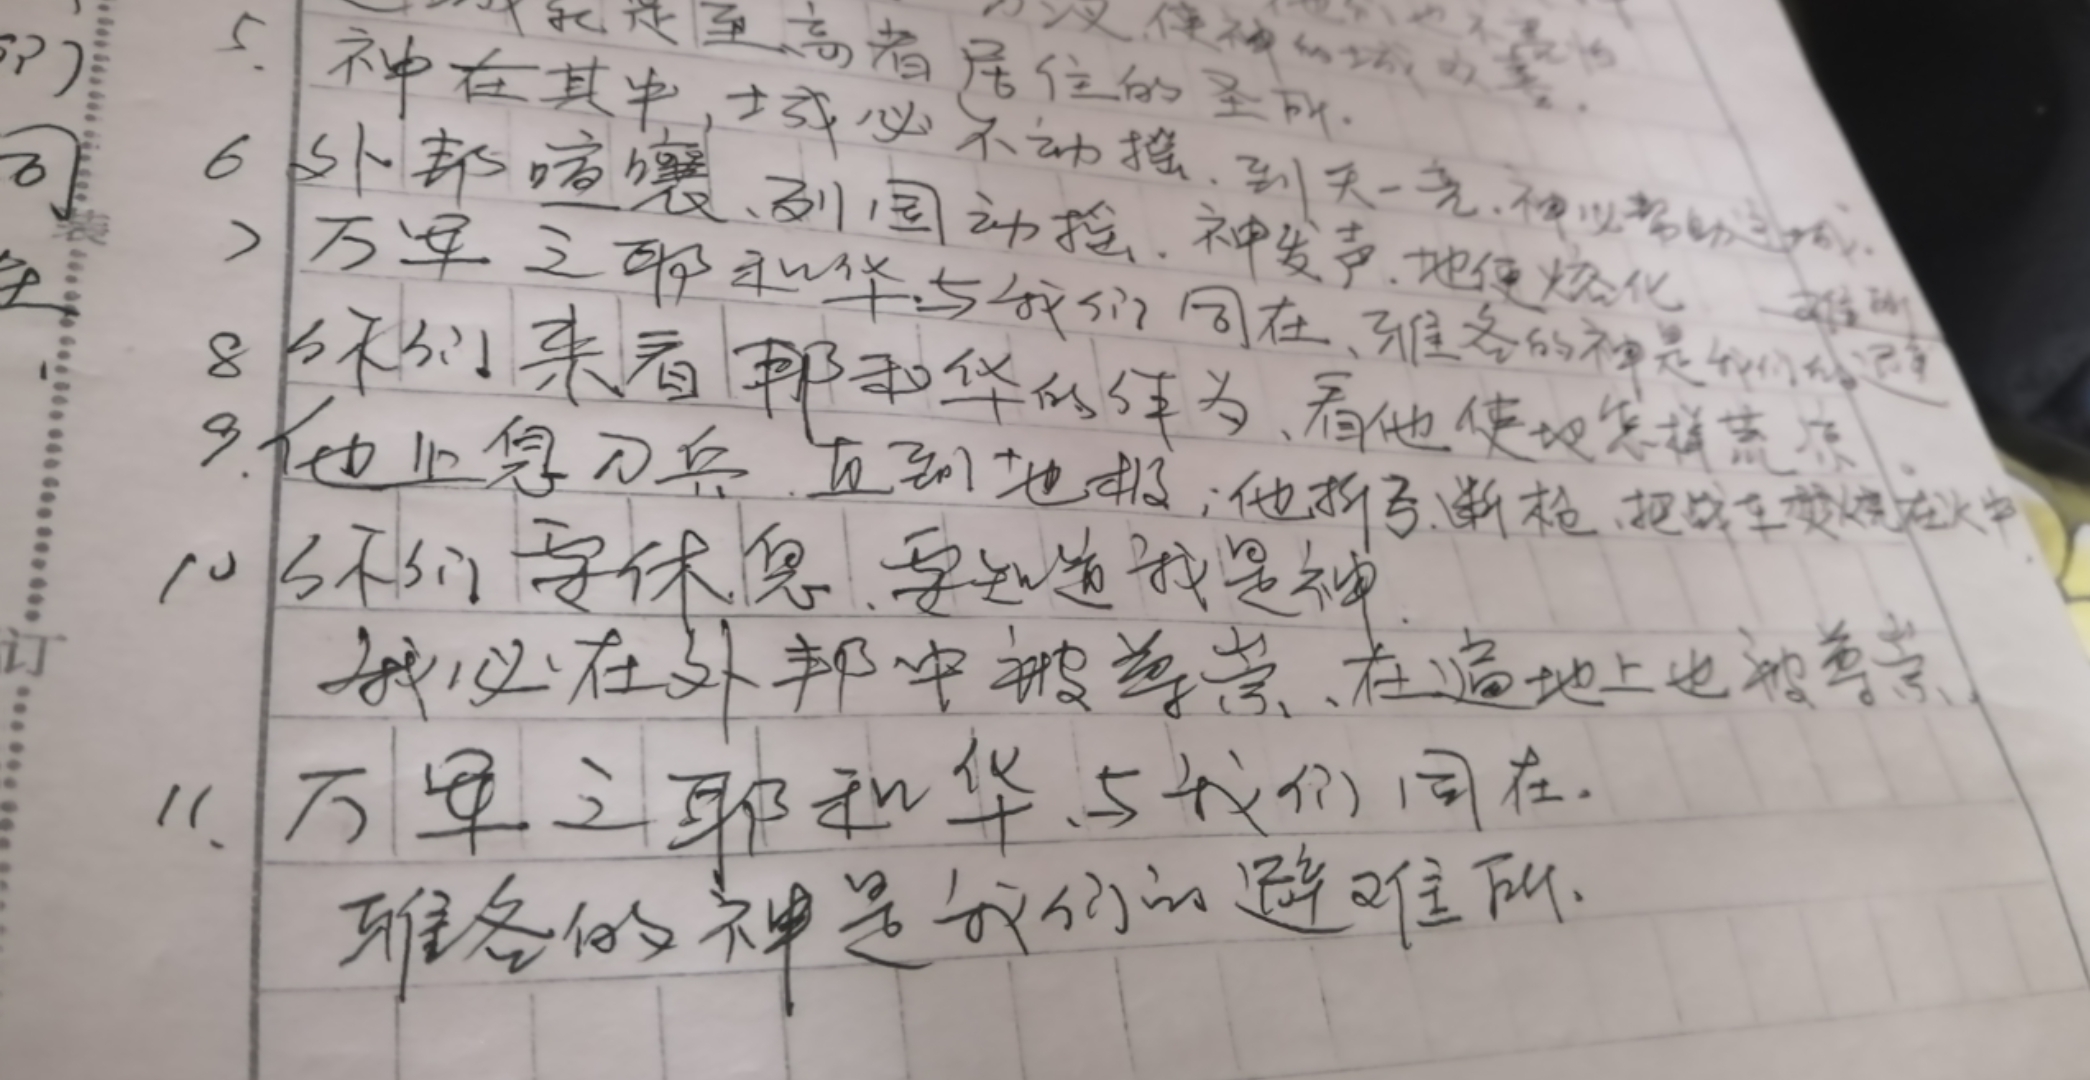 使神的城欢喜.
就是至高者居住的圣所.
5. 神在其中,城必不动摇.到天一亮.神必帮助这城.
6 外邦喧嚷、列国动摇.神发声.地便熔化
7 万军之耶和华.与我们同在、雅各的神是我们的避
难所
8 你们来看耶和华的作为、看他使地怎样荒凉.
9. 他止息刀兵.直到地极;他折弓.断枪、把战车焚烧在火中.
10 你们要休息、要知道我是神.
我必在外邦中被尊崇、在遍地上也被尊崇、
11. 万军之耶和华、与我们同在.
雅各的神是我们的避难所.
装
订